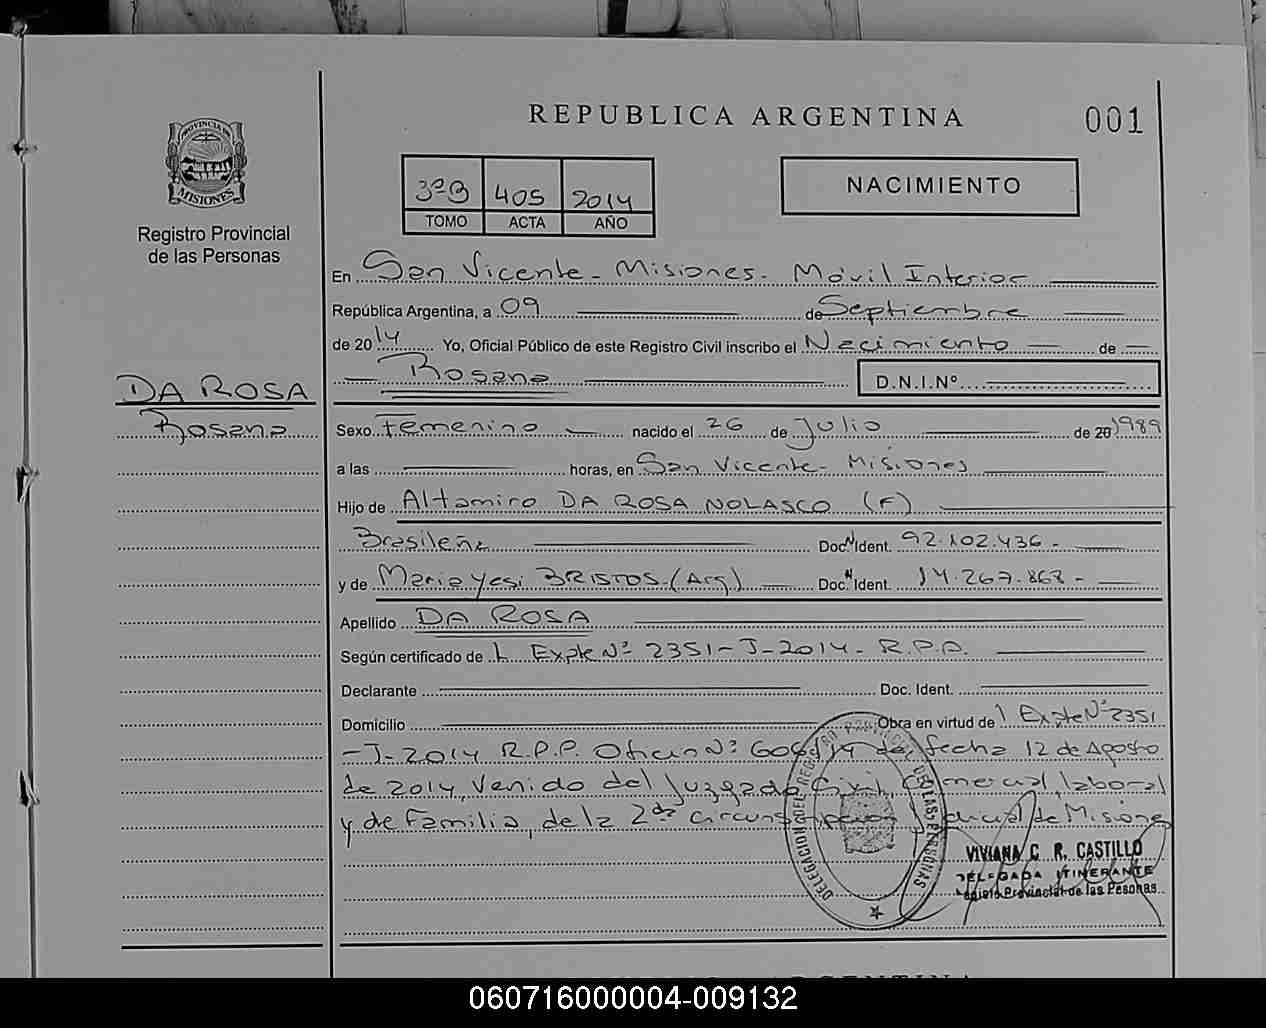 REPUBLICA ARGENTINA
001
PROVINCIA DE
MISIONES
Registro Provincial
de las Personas
3ºB 405 2014
TOMO ACTA AÑO
NACIMIENTO
En San Vicente - Misiones - Móvil Interior
República Argentina, a 09 de Septiembre
de 2014 Yo, Oficial Público de este Registro Civil inscribo el Nacimiento de
Rosana D.N.I.Nº
DA ROSA
Rosana
Sexo Femenino nacido el 26 de Julio de 20 1989
a las horas, en San Vicente - Misiones
Hijo de Altamiro DA ROSA NOLASCO (F)
Brasileña Doc. Ident. 92.102.436 -
y de Maria Yesi BRISTOS (Arg) Doc. Ident. 14.267.868 -
Apellido DA ROSA
Según certificado de L. Expte Nº 2351-J-2014- R.P.P.
Declarante Doc. Ident.
Domicilio Obra en virtud de Expte Nº 2351
-J-2014 R.P.P. Oficio Nº 606/14 de fecha 12 de Agosto
de 2014, Venido del Juzgado Civil, Comercial, laboral
y de Familia, de la 2da Circunscripcion Judicial de Misiones
DELEGACION DEL REGISTRO PROVINCIAL DE LAS PERSONAS
VIVIANA C. R. CASTILLO
DELEGADA ITINERANTE
Registro Provincial de las Pesonas
REPUBLICA ARGENTINA
060716000004-009132